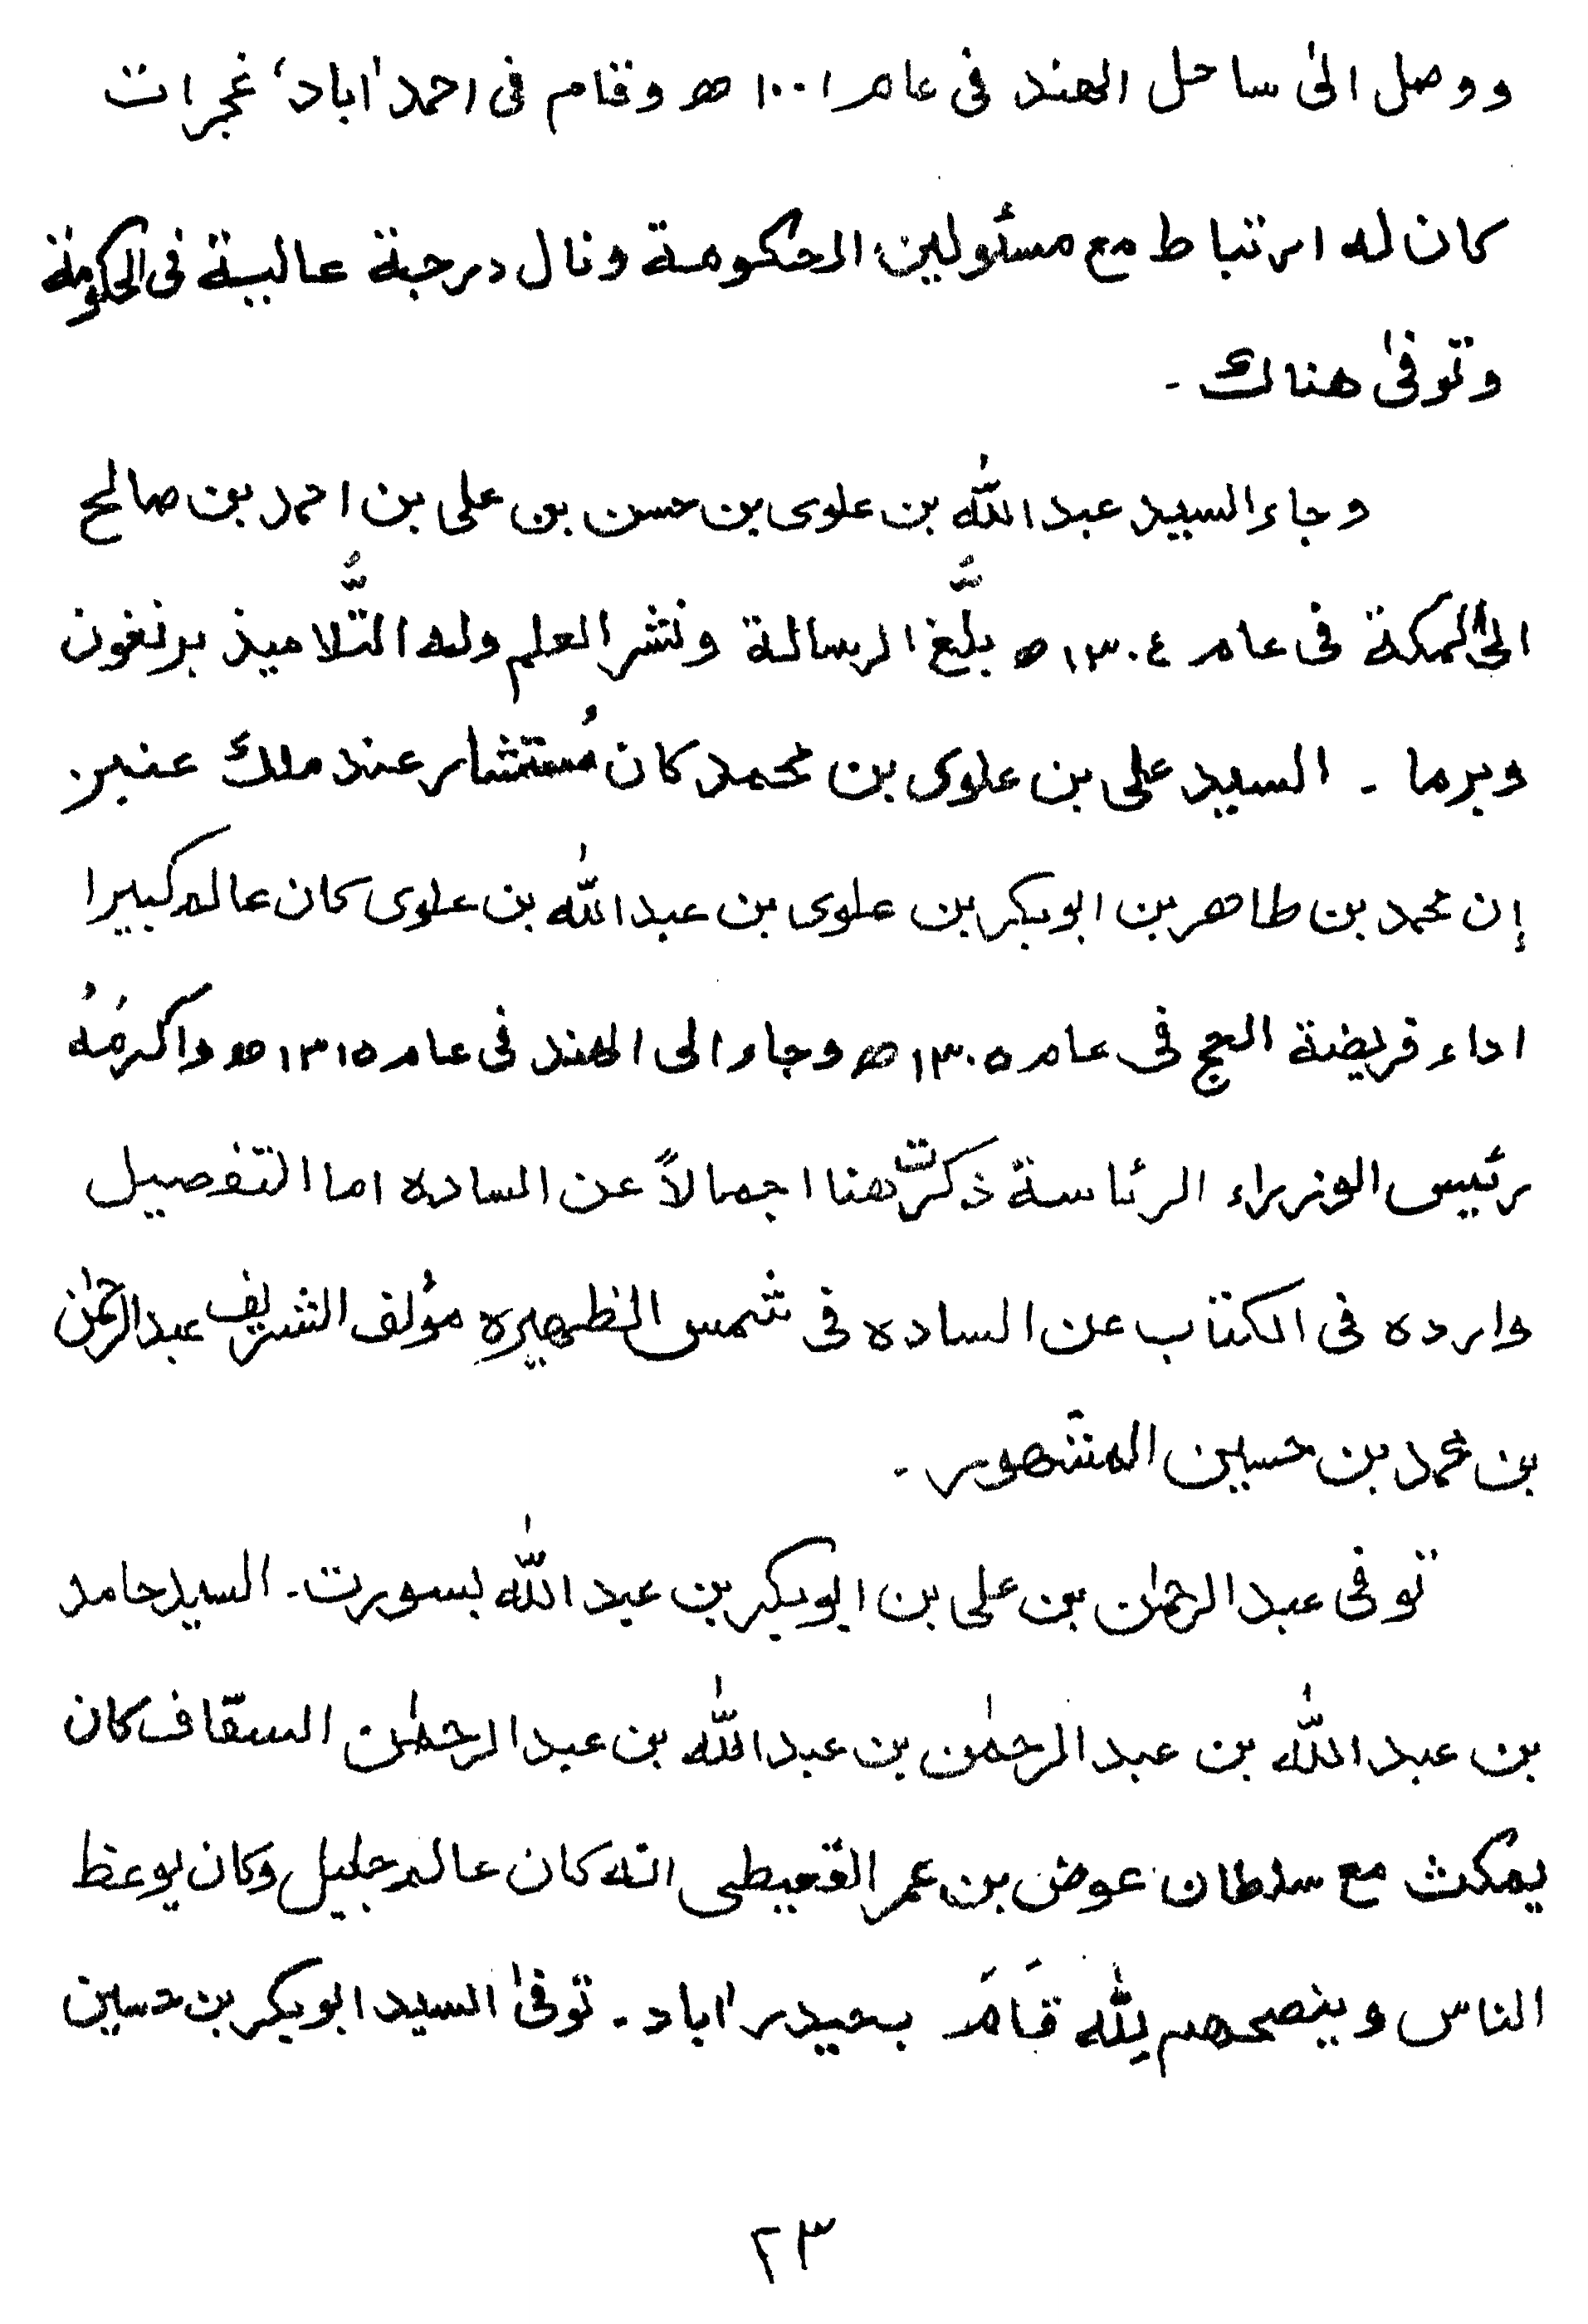 ووصل الىٰ ساحل الهند فى عام ١٠٠١ ھ وقام فى احمد اٰباد، غجرات
كان له ارتباط مع مسئولين الحكومة ونال درجة عالية فى الحكومة
وتوفىٰ هناك ۔
وجاء السيد عبد اللّٰه بن علوى بن حسن بن على بن احمد بن صالح
الىٰ المكة فى عام ١٣٠٤ ھ بلَّغ الرسالة ونشر العلم وله التُّلاميذ برنغون
وبرما ۔ السيد على بن علوى بن محمد كان مُستشار عند ملك عنبر
إن محمد بن طاهر بن ابوبكر بن علوى بن عبد اللّٰه بن علوى كان عالم كبيرا
اداء فريضة الحج فى عام ١٣٠٥ ھ وجاء الى الهند فى عام ١٣١٥ ھ واكرمَهُ
رئيس الوزراء الرئاسة ذكرت هنا اجمالاً عن الساده اما التفصيل
وارده فى الكتاب عن الساده فى شمس الظهيره مؤلف الشريف عبد الرحمٰن
بن محمد بن حسين المشهور ۔
توفى عبد الرحمٰن بن على بن ابوبكر بن عبد اللّٰه بسورت ۔ السيد حامد
بن عبد اللّٰه بن عبد الرحمٰن بن عبد اللّٰه بن عبد الرحمٰن السقاف كان
يمكث مع سلطان عوض بن عمر القعيطى انه كان عالم جليل وكان يوعظ
الناس وينصحهم لِلّٰه قَامَ بحيدر اٰباد ۔ توفىٰ السيد ابوبكر بن حسين
٢٣